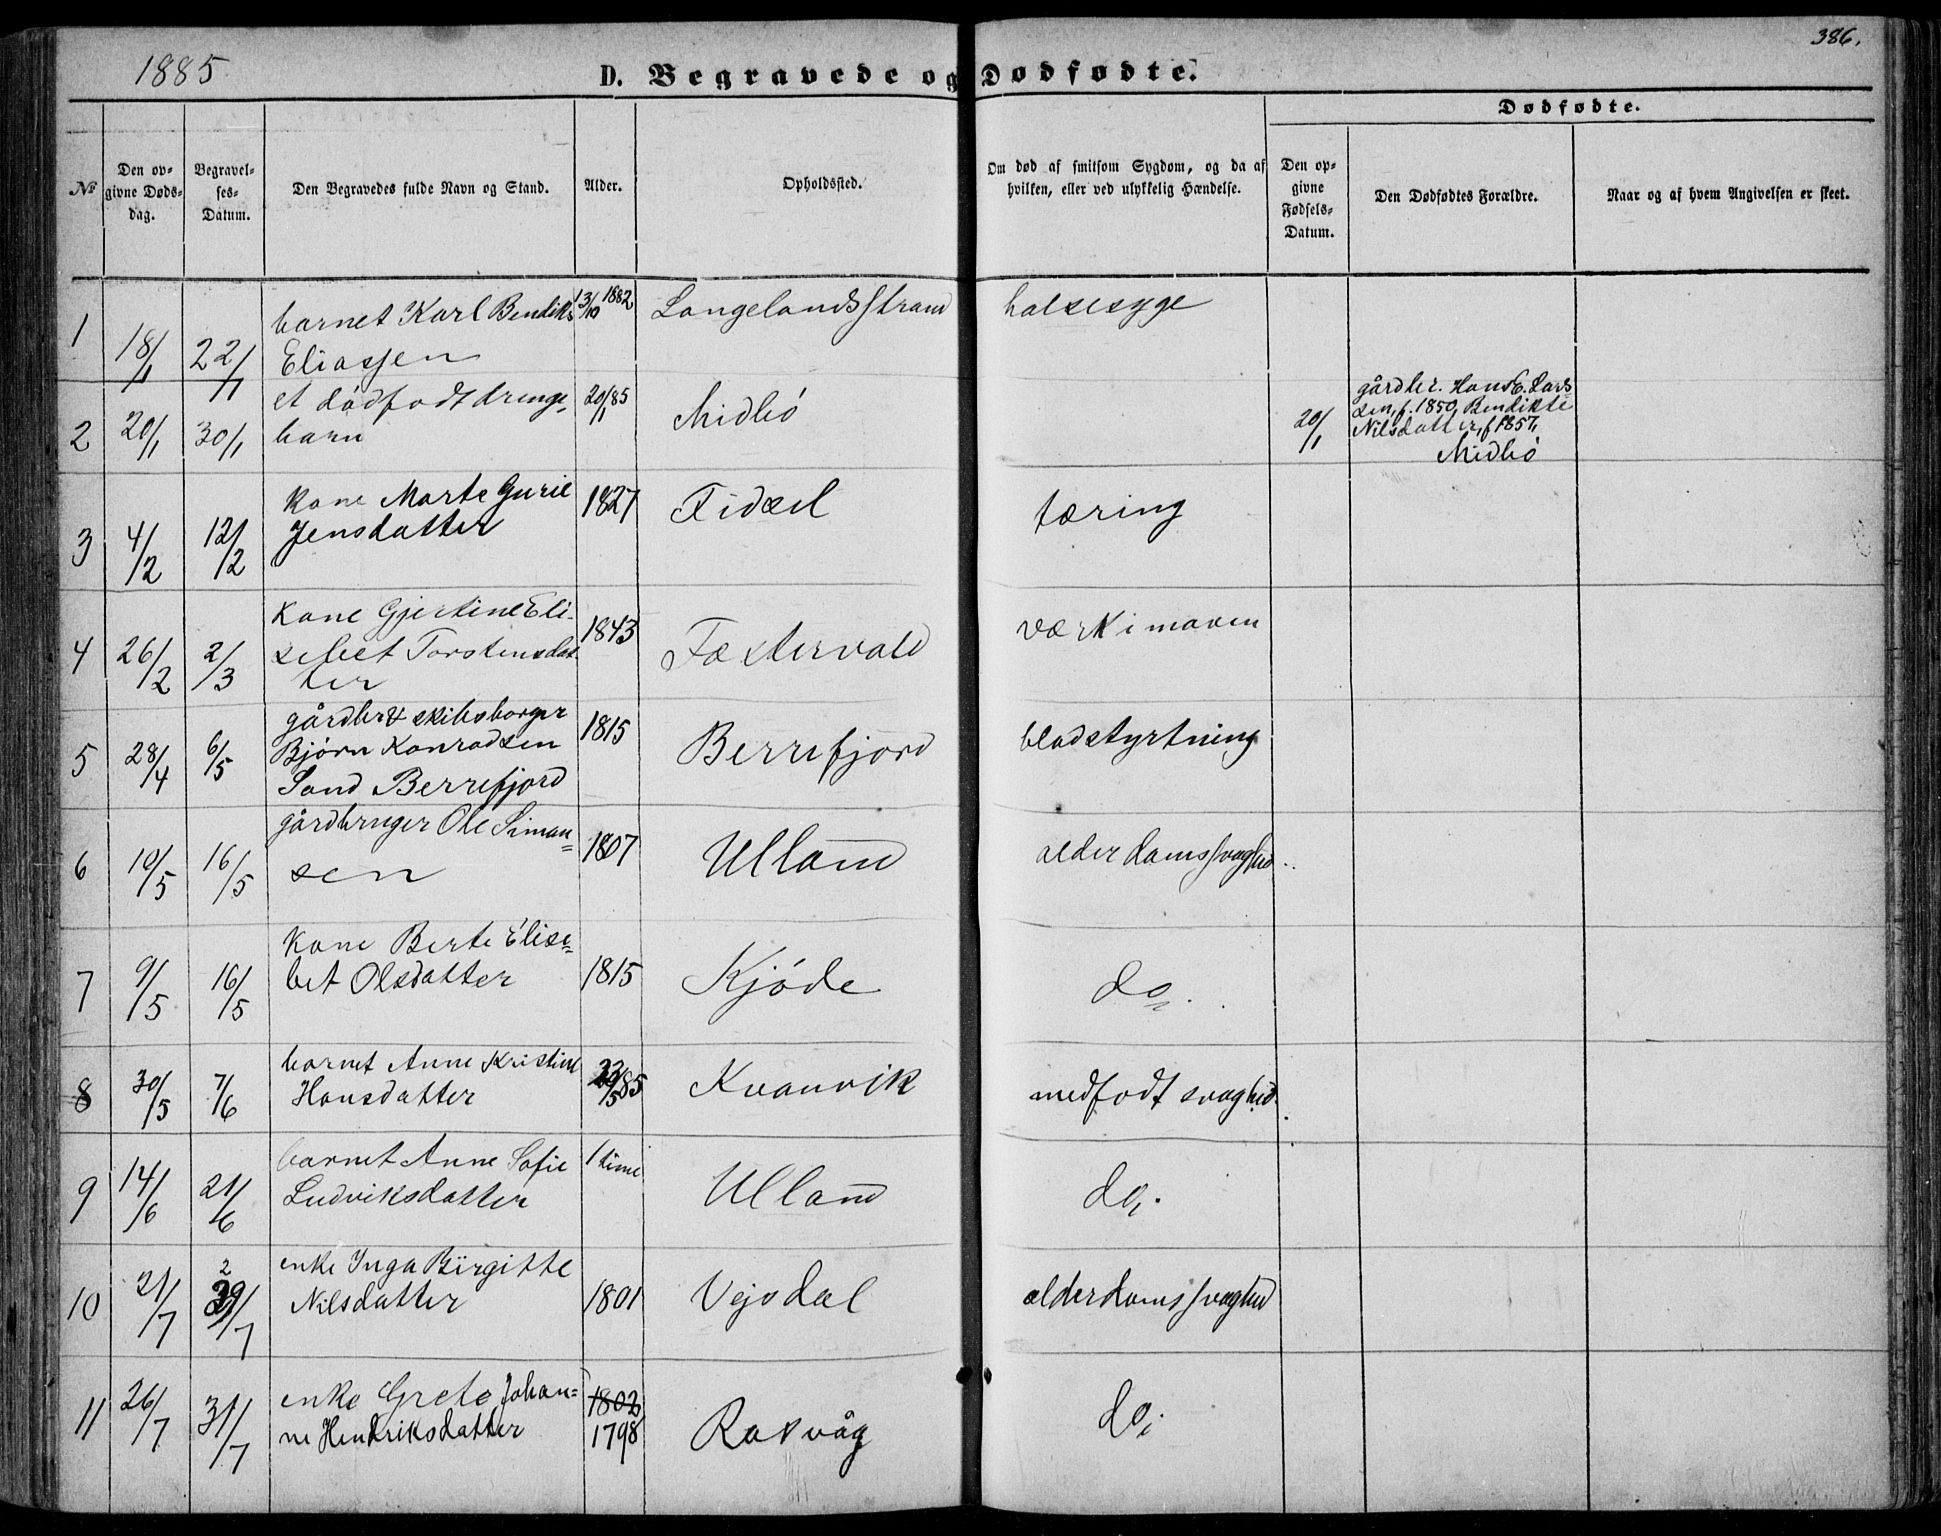 1885
386.
D. Begravede og Dødfødte.
Dødfødte.
№
Den op-
givne Døds-
dag.
Begravel-
ses-
Datum.
Den Begravedes fulde Navn og Stand.
Alder.
Opholdssted.
Om død af smitsom Sygdom, og da af
hvilken, eller ved ulykkelig Hændelse.
Den op-
givne
Fødsels-
Datum.
Den Dødfødtes Forældre.
Naar og af hvem Angivelsen er skeet.
1 18/1 22/1 barnet Karl Bendiks 13/10 1882 Langelandsstrand halsesyge
Eliassen
2 20/1 30/1 et dódfodt drenge- 20/1 85 Midbó 20/1
barn
gårdbr. Hans E. Lars
sen, f. 1850, Bendikte
Nilsdatter, f 1857,
Midbó
3 4/2 12/2 kone Marte Gurie 1827 Fidæl tæring
Jensdatter
4 26/2 2/3 Kone Gjertine Eli- 1843 Fæstervold værk i maven
sebet Torstensdat
ter
5 28/4 6/5 gårdbr & skibsborger 1815 Berrefjord blodstyrtning
Bjørn Konradsen
Sand Berrefjord
6 10/5 16/5 gårdbruger Ole Simon= 1807 Ulland alderdomssvaghed
sen
7 9/5 16/5 Kone Berte Elise= 1815 Kjóde do.
bet Olsdatter
8 30/5 7/6 barnet Anne Kristine 23/5 85 Kvanvik medfodt svaghed.
Hansdatter
9 14/6 21/6 barnet Anne Sofie 1 time Ulland do.
Ludviksdatter
10 21/7 29/7 enke Inga Birgitte 1801 Vejsdal alderdomssvaghed
2
Nilsdatter
11 26/7 31/7 enke Grete Johan= 1802 Rakvåg do.
ne Hendriksdatter 1798